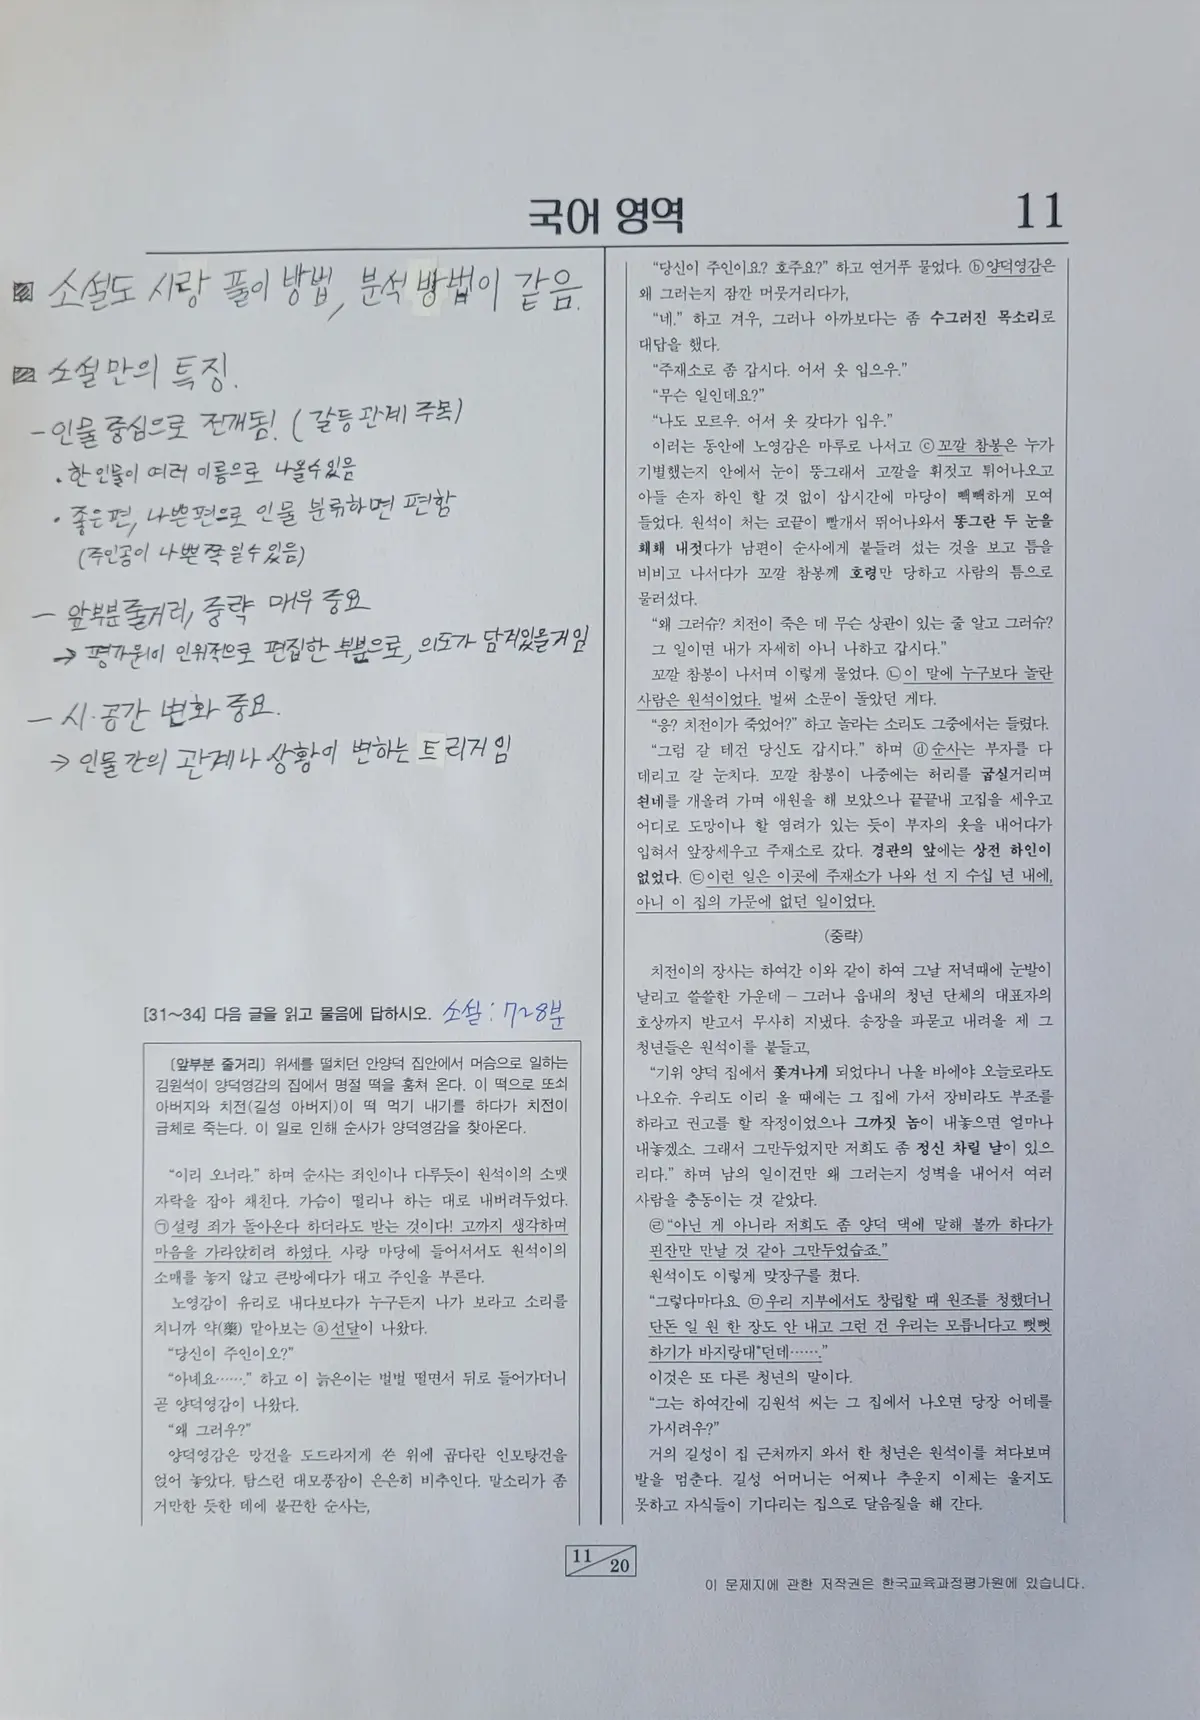 국어 영역
11
▨ 소설도 시랑 풀이 방법, 분석 방법이 같음.
▨ 소설만의 특징.
- 인물 중심으로 전개됨! (갈등관계 주목)
• 한 인물이 여러 이름으로 나올수있음
• 좋은편, 나쁜편으로 인물 분류하면 편함
(주인공이 나쁜쪽일수있음)
- 앞부분줄거리, 중략 매우 중요
→ 평가원이 인위적으로 편집한 부분으로, 의도가 담겨있을거임
- 시·공간 변화 중요.
→ 인물 간의 관계나 상황이 변하는 트리거임
[31~34] 다음 글을 읽고 물음에 답하시오. 소설 : 7~8분
[앞부분 줄거리] 위세를 떨치던 안양덕 집안에서 머슴으로 일하는
김원석이 양덕영감의 집에서 명절 떡을 훔쳐 온다. 이 떡으로 또쇠
아버지와 치전(길성 아버지)이 떡 먹기 내기를 하다가 치전이
급체로 죽는다. 이 일로 인해 순사가 양덕영감을 찾아온다.
“이리 오너라.” 하며 순사는 죄인이나 다루듯이 원석이의 소맷
자락을 잡아 채친다. 가슴이 떨리나 하는 대로 내버려두었다.
㉠설령 죄가 돌아온다 하더라도 받는 것이다! 고까지 생각하며
마음을 가라앉히려 하였다. 사랑 마당에 들어서서도 원석이의
소매를 놓지 않고 큰방에다가 대고 주인을 부른다.
노영감이 유리로 내다보다가 누구든지 나가 보라고 소리를
치니까 약(藥) 맡아보는 ⓐ선달이 나왔다.
“당신이 주인이오?”
“아녜요…….” 하고 이 늙은이는 벌벌 떨면서 뒤로 들어가더니
곧 양덕영감이 나왔다.
“왜 그러우?”
양덕영감은 망건을 도드라지게 쓴 위에 곱다란 인모탕건을
얹어 놓았다. 탐스런 대모풍잠이 은은히 비추인다. 말소리가 좀
거만한 듯한 데에 불끈한 순사는,
“당신이 주인이요? 호주요?” 하고 연거푸 물었다. ⓑ양덕영감은
왜 그러는지 잠깐 머뭇거리다가,
“네.” 하고 겨우, 그러나 아까보다는 좀 수그러진 목소리로
대답을 했다.
“주재소로 좀 갑시다. 어서 옷 입으우.”
“무슨 일인데요?”
“나도 모르우. 어서 옷 갖다가 입우.”
이러는 동안에 노영감은 마루로 나서고 ⓒ꼬깔 참봉은 누가
기별했는지 안에서 눈이 뚱그래서 고깔을 휘젓고 튀어나오고
아들 손자 하인 할 것 없이 삽시간에 마당이 빽빽하게 모여
들었다. 원석이 처는 코끝이 빨개서 뛰어나와서 똥그란 두 눈을
홰홰 내젓다가 남편이 순사에게 붙들려 섰는 것을 보고 틈을
비비고 나서다가 꼬깔 참봉께 호령만 당하고 사람의 틈으로
물러섰다.
“왜 그러슈? 치전이 죽은 데 무슨 상관이 있는 줄 알고 그러슈?
그 일이면 내가 자세히 아니 나하고 갑시다.”
꼬깔 참봉이 나서며 이렇게 물었다. ㉡이 말에 누구보다 놀란
사람은 원석이었다. 벌써 소문이 돌았던 게다.
“응? 치전이가 죽었어?” 하고 놀라는 소리도 그중에서는 들렸다.
“그럼 갈 테건 당신도 갑시다.” 하며 ⓓ순사는 부자를 다
데리고 갈 눈치다. 꼬깔 참봉이 나중에는 허리를 굽실거리며
쇤네를 개올려 가며 애원을 해 보았으나 끝끝내 고집을 세우고
어디로 도망이나 할 염려가 있는 듯이 부자의 옷을 내어다가
입혀서 앞장세우고 주재소로 갔다. 경관의 앞에는 상전 하인이
없었다. ㉢이런 일은 이곳에 주재소가 나와 선 지 수십 년 내에,
아니 이 집의 가문에 없던 일이었다.
(중략)
치전이의 장사는 하여간 이와 같이 하여 그날 저녁때에 눈발이
날리고 쓸쓸한 가운데 – 그러나 읍내의 청년 단체의 대표자의
호상까지 받고서 무사히 지냈다. 송장을 파묻고 내려올 제 그
청년들은 원석이를 붙들고,
“기위 양덕 집에서 쫓겨나게 되었다니 나올 바에야 오늘로라도
나오슈. 우리도 이리 올 때에는 그 집에 가서 장비라도 부조를
하라고 권고를 할 작정이었으나 그까짓 놈이 내놓으면 얼마나
내놓겠소. 그래서 그만두었지만 저희도 좀 정신 차릴 날이 있으
리다.” 하며 남의 일이건만 왜 그러는지 성벽을 내어서 여러
사람을 충동이는 것 같았다.
㉣“아닌 게 아니라 저희도 좀 양덕 댁에 말해 볼까 하다가
핀잔만 만날 것 같아 그만두었습죠.”
원석이도 이렇게 맞장구를 쳤다.
“그렇다마다요. ㉤우리 지부에서도 창립할 때 원조를 청했더니
단돈 일 원 한 장도 안 내고 그런 건 우리는 모릅니다고 뻣뻣
하기가 바지랑대*던데…….”
이것은 또 다른 청년의 말이다.
“그는 하여간에 김원석 씨는 그 집에서 나오면 당장 어데를
가시려우?”
거의 길성이 집 근처까지 와서 한 청년은 원석이를 쳐다보며
발을 멈춘다. 길성 어머니는 어찌나 추운지 이제는 울지도
못하고 자식들이 기다리는 집으로 달음질을 해 간다.
11
20
이 문제지에 관한 저작권은 한국교육과정평가원에 있습니다.